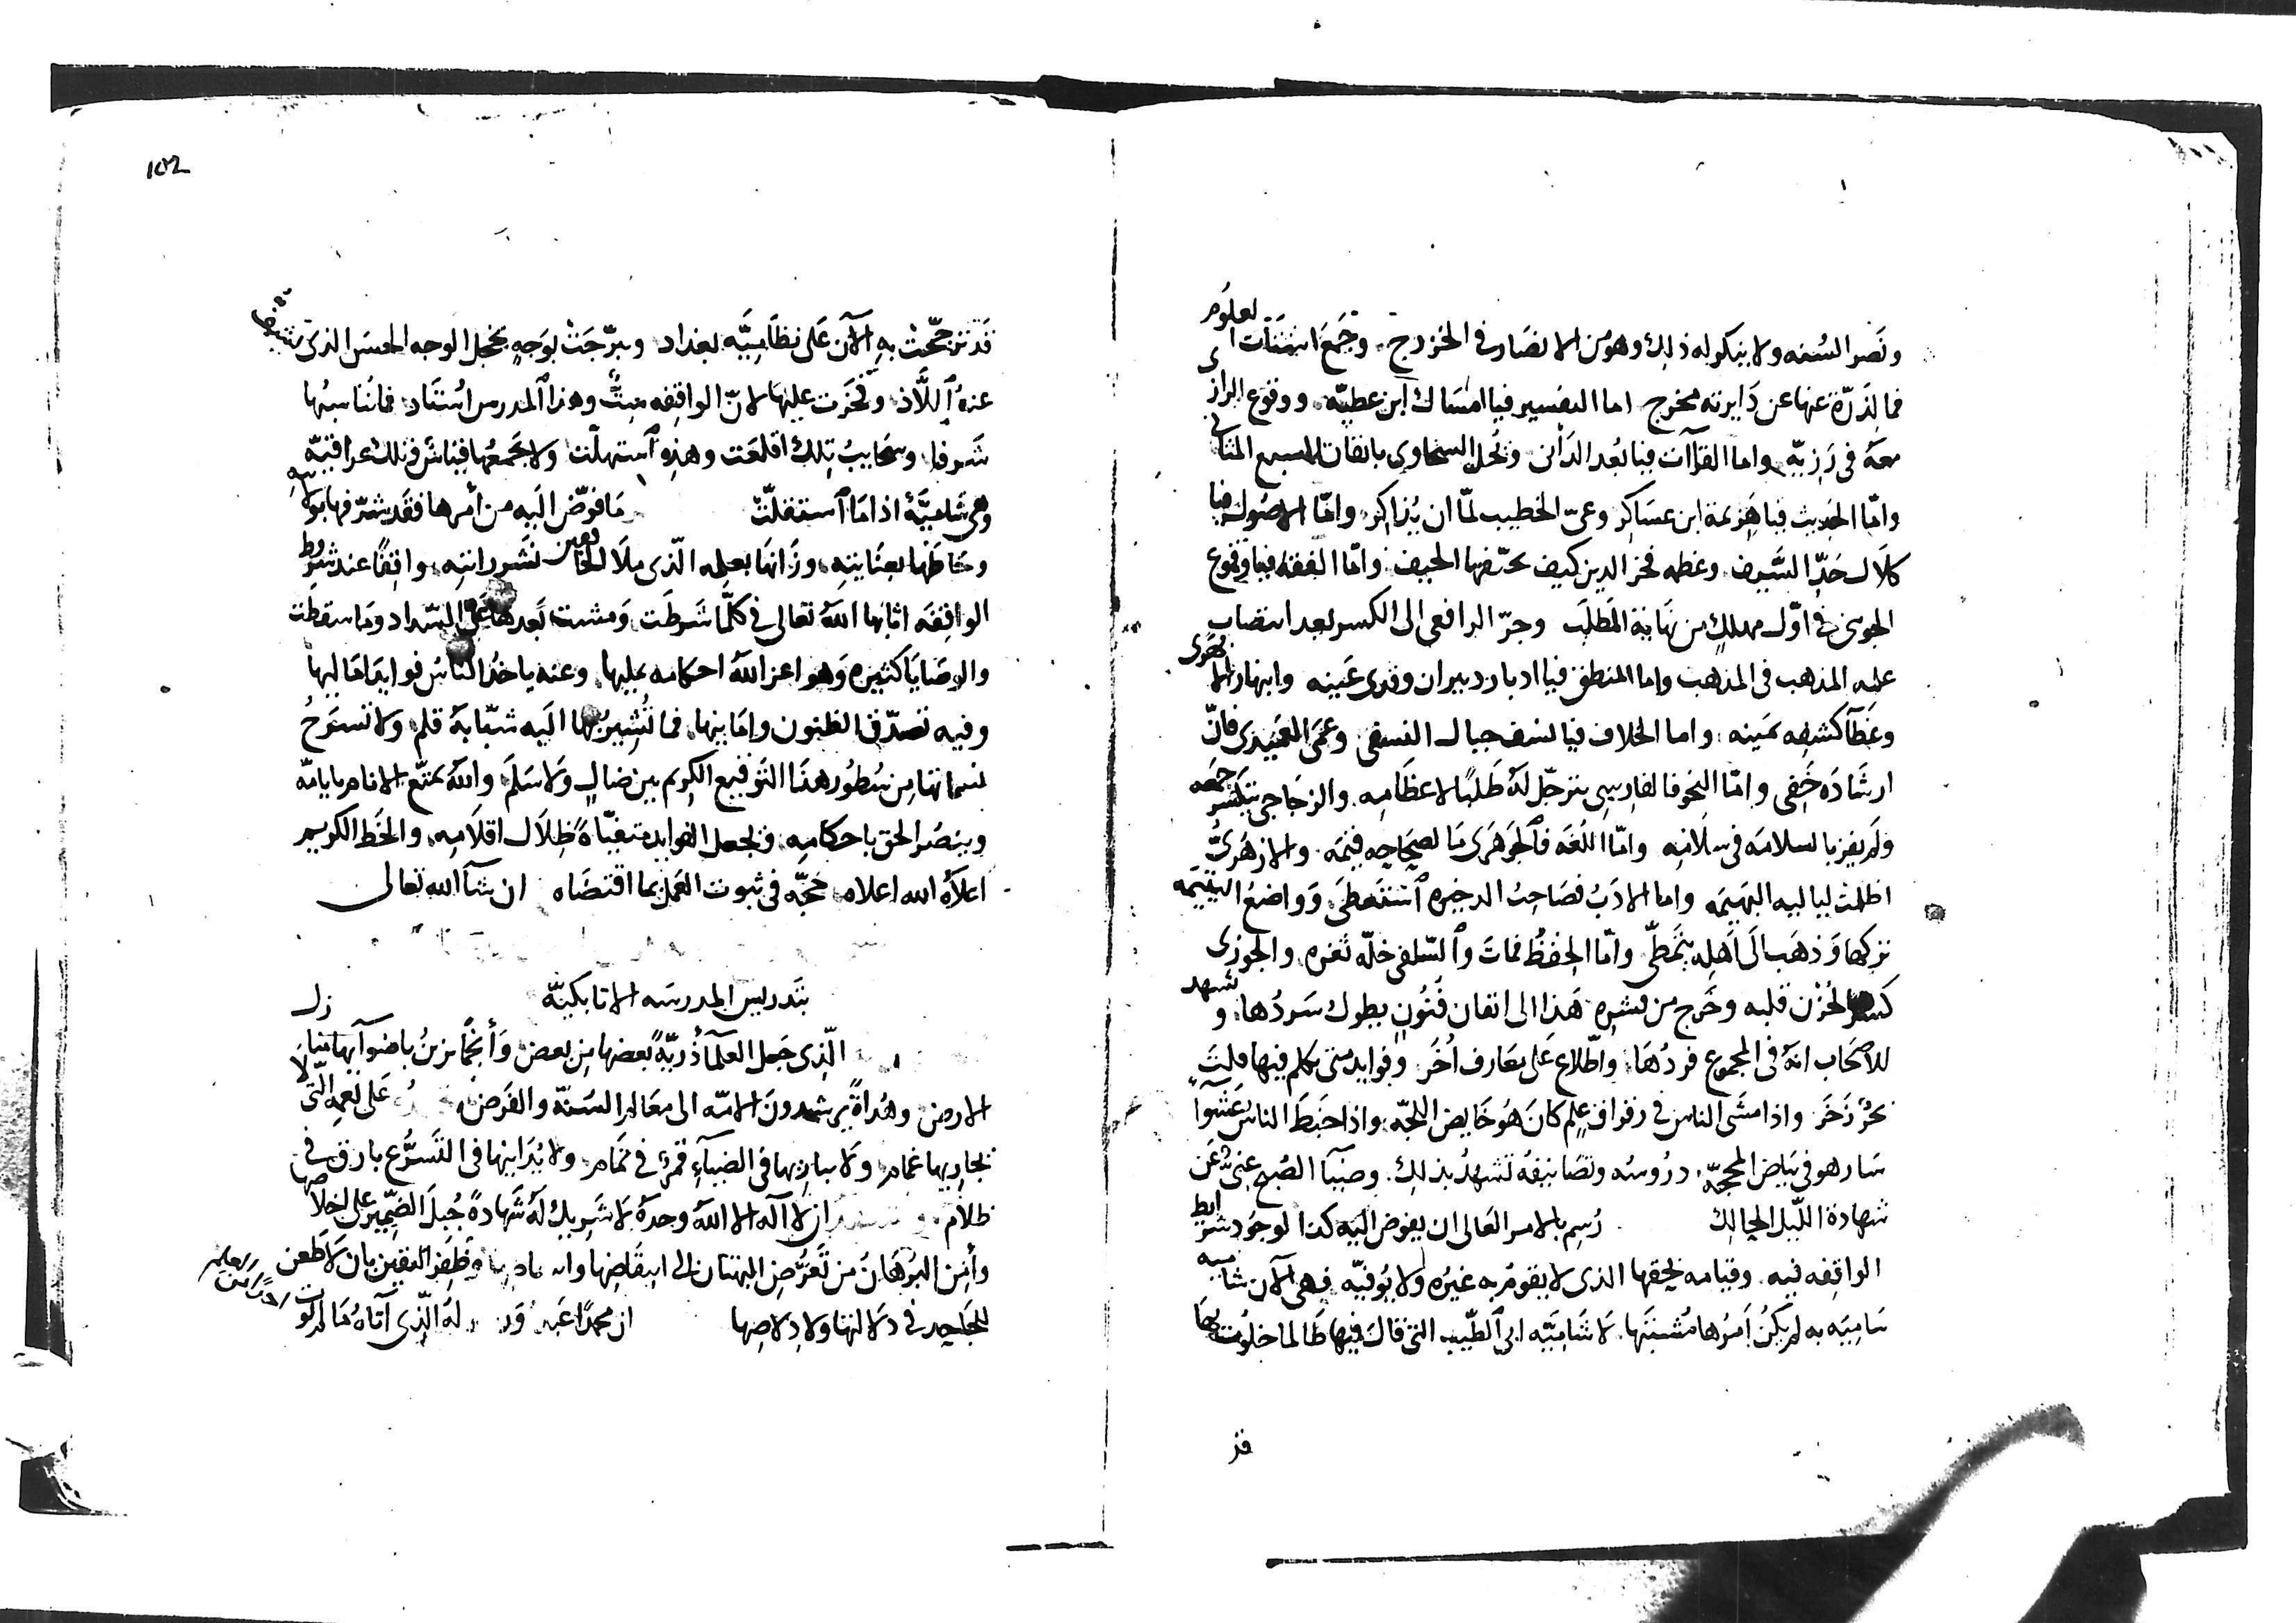 ونَصر السُنه ولا ينكر له ذلك وهو من الانصار في الخزرج وجَمَعَ اشتتات العلوم
فما لِذرّة عنها عن دَايرته مخرج اما التفسير فيا امسَاك ابن عطيّه ووقوع الرازى
معَهُ فى رَزِيّه واما القراآت فيا بُعد الدَانى وبُخل السخاوى باتقان السبع المثانى
وامّا الحديث فيا هزيمة ابن عساكر وعىّ الخطيب لمّا ان يُذاكر وامّا الاصُول فيا
كلال حَدّ السَّيف وعظمه فخر الدين كيف تحيّفها الحيف وامّا الفقه فيا وقوع
الجوينى فى اوّل مهلكٍ من نهاية المَطلَب وجرّ الرافعى الى الكسر بعد انتصاب
عليه المذهب فى المذهب واما المنطق فيا ادبار دبيران وقذى عَينه وانبهار الابهرى
وغَطآ كشفه بمَينه واما الخلاف فيا نسف جبال النسفى وعَمَى العَميدى فانّ
ارشادَه خَفى وامّا النحو فالفارسى يترجّل لهُ طلبًا لاعظامه والزجاجى يتكسّر جمعه
ولم يفز بالسلامة فى سلامه وامّا اللغَه فالجوهَرى مَا لصحاحِه قيمَه والازهرىُّ
اظلمت لياليه البهيمَه واما الادَبُ فصَاحبُ الدخيره اَستَعطَى وَواضعُ اليتيمه
تركها وَذهَب الى اَهلِه يتمَطّى وامّا الحِفظُ فماتَ والسّلفى خلّه ثغره والجوزى
كسر الحُزن قلبه وخَرج من قشره هَذا الى اتقان فُنُونٍ يطول سَردُها وشهد
للاصحاب انهُ فى المجموع فردُهَا واطّلاع عَلى معَارف اُخَر وفوايد متى تكلم فيها قلتَ
بحرٌ زَخَر واذا مشَى الناس فى رقراق علمٍ كانَ هُو خايض اللجّه واذا خبَط الناس عَشوآءَ
سَار هو فى بيَاض المحجّه دروُسُه وتصَانيفُه تشهدُ بذلك وضيآ الصُبح غنىٌّ عَن
شهادة اللّيل الحالك رُسم بالامر العَالى ان يفوض اليَه كذا لوجُود شرايط
الواقفه فيه وقيامه بحقها الذى لا يقومُ به غيرُه ولا يُوفيّه فهى الآن شاميه
سَاميَه به لم يكُن اَمرُها مُشتبَها لا شَاميّه ابى الطّيب التى قالَ فيها طَالما خلوت بهَا
قد
102
قَد ترجّحَت بهِ الآن عَلى نظَاميَّه بغداد وتبرّجَت بوَجهٍ يخجل الوجه الحسَن الذى
عندهُ اَللَّاذ وفخَرَت عليهَا لانّ الواقفه ستٌّ وهذا اَلمدرس اُستَاد فما تُناسبُها
شَرفا وسَحَايبُ تِلك اقلعَت وهذِه اَستهلّت ولا يجَمعُها قيَاسٌ فتلك عراقيّه
وهى شَاميَّةٌ اذا مَا اَستقلّت مَا فوّض اليَه من أمرها فقَد شرّفها بولايته
وحَاطهَا بعنَايتِه وزَانهَا بعلمه الّذى مَلا الخافقين نشر راَيته واقفًا عند شرُوط
الواقفَه اثابها اللّهُ تعالى فى كلّما شَرطَت وَمشت بَعدها عَلى السّداد وَمَا سقطت
والوصَايَا كثيره وَهو اعز اللّهُ احكامه عليها وعنه ياخذ الناسُ فوايد امَاليها
وفيه تصدّق الظنون وامَانيها فما تُشيرُ بها اليَه شبّابةُ قلم ولا تسنَحُ
نسماتها من سُطُور هذَا التوقيع الكريم بين ضالٍ وَلا سَلَم واللّهُ يمتّع الانام بايامه
وينصُر الحق باحكامه ويجعل الفوايد متفيّاةً ظِلَال اقلَامِه والخَط الكريم
اعلَاهُ الله اعلاه حُجّه فى ثبوت العَمل بما اقتضَاه ان شآ الله تعالى
بتَدريس المدرسَه الاتابكيّه
الّذى جَعل العلمآ ذُريّةً بعضهَا مِن بعض وَأنجُمًا يزينُ باضوآيها منازل
الارض وهُداةً يرشدونَ الامّه الى معَالم السُنّه والفَرض عَلى نعمه التى لا
يجاريها غمام ولا يباريها فى الضيآءِ قمرٌ فى تمَام ولا يُدَانيها فى التَسرُّع بارق فى
ظلام ان لا اله الا اللّهُ وحدَهُ لا شَريكَ لهُ شَهادةً جُبلَ الضّمير على اخلاصها
وأمِنَ البُرهَانُ مِن تَعرُّض البهتان الى انتقَاصِهَا وَظفِرَ اليَقين بان لَا طَعن
للجَاحد فى دَلالتها ولا دِلاصِها ان محمدًا عَبده لهُ الّذى آتاهُ مَا لم يوت
احدًا من العالمين